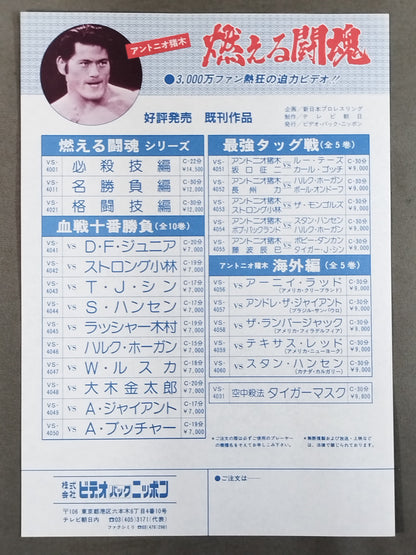 アントニオ猪木
燃える闘魂
●3,000万ファン熱狂の迫力ビデオ!!
好評発売 既刊作品
企画／新日本プロレスリング
制作／テレビ朝日
発行／ビデオ・パック・ニッポン
燃える闘魂 シリーズ
VS-4001 必殺技編 C-22分 ¥14,500
VS-4011 名勝負編 C-30分 ¥12,000
VS-4021 格闘技編 C-30分 ¥12,000
血戦十番勝負(全10巻)
VS-4041 VS D・F・ジュニア C-20分 ¥7,000
VS-4042 VS ストロング小林 C-19分 ¥7,000
VS-4043 VS T・J・シン C-17分 ¥7,000
VS-4044 VS S・ハンセン C-17分 ¥7,000
VS-4045 VS ラッシャー木村 C-19分 ¥7,000
VS-4046 VS ハルク・ホーガン C-15分 ¥7,000
VS-4047 VS W・ルスカ C-19分 ¥7,000
VS-4048 VS 大木金太郎 C-20分 ¥7,000
VS-4049 VS A・ジャイアント C-17分 ¥7,000
VS-4050 VS A・ブッチャー C-19分 ¥7,000
最強タッグ戦(全5巻)
VS-4051 アントニオ猪木 坂口征二 VS ルー・テーズ カール・ゴッチ C-30分 ¥9,000
VS-4052 アントニオ猪木 長州力 VS ハルク・ホーガン ポール・オンドーフ C-30分 ¥9,000
VS-4053 アントニオ猪木 ストロング小林 VS ザ・モンゴルズ C-30分 ¥9,000
VS-4054 アントニオ猪木 ボブ・バックランド VS スタン・ハンセン ハルク・ホーガン C-30分 ¥9,000
VS-4055 アントニオ猪木 藤波辰巳 VS ボビー・ダンカン タイガー・J・シン C-30分 ¥9,000
アントニオ猪木 海外編(全5巻)
VS-4056 VS アーニィ・ラッド (アメリカ・クリーブランド) C-30分 ¥9,000
VS-4057 VS アンドレ・ザ・ジャイアント (ブラジル・サンパウロ) C-30分 ¥9,000
VS-4058 VS ザ・ランバージャック (アメリカ・フィラデルフィア) C-30分 ¥9,000
VS-4059 VS テキサス・レッド (アメリカ・ニューヨーク) C-30分 ¥9,000
VS-4060 VS スタン・ハンセン (カナダ・カルガリー) C-30分 ¥9,000
VS-4031 空中殺法 タイガーマスク C-30分 ¥9,800
＊ご注文の際は必ずご使用のプレーヤーの機種名をそえてお申し込み下さい。
＊無断複製および放送・上映などは、法律で禁じられております。
株式会社 ビデオパックニッポン
〒106 東京都港区六本木6丁目4番10号
テレビ朝日内 ☎03(405)3171(代表)
ファクシミリ 03(478)2981
ご注文は